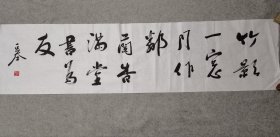 竹影
一窓
月作
鄰
蘭香
满堂
書為
友